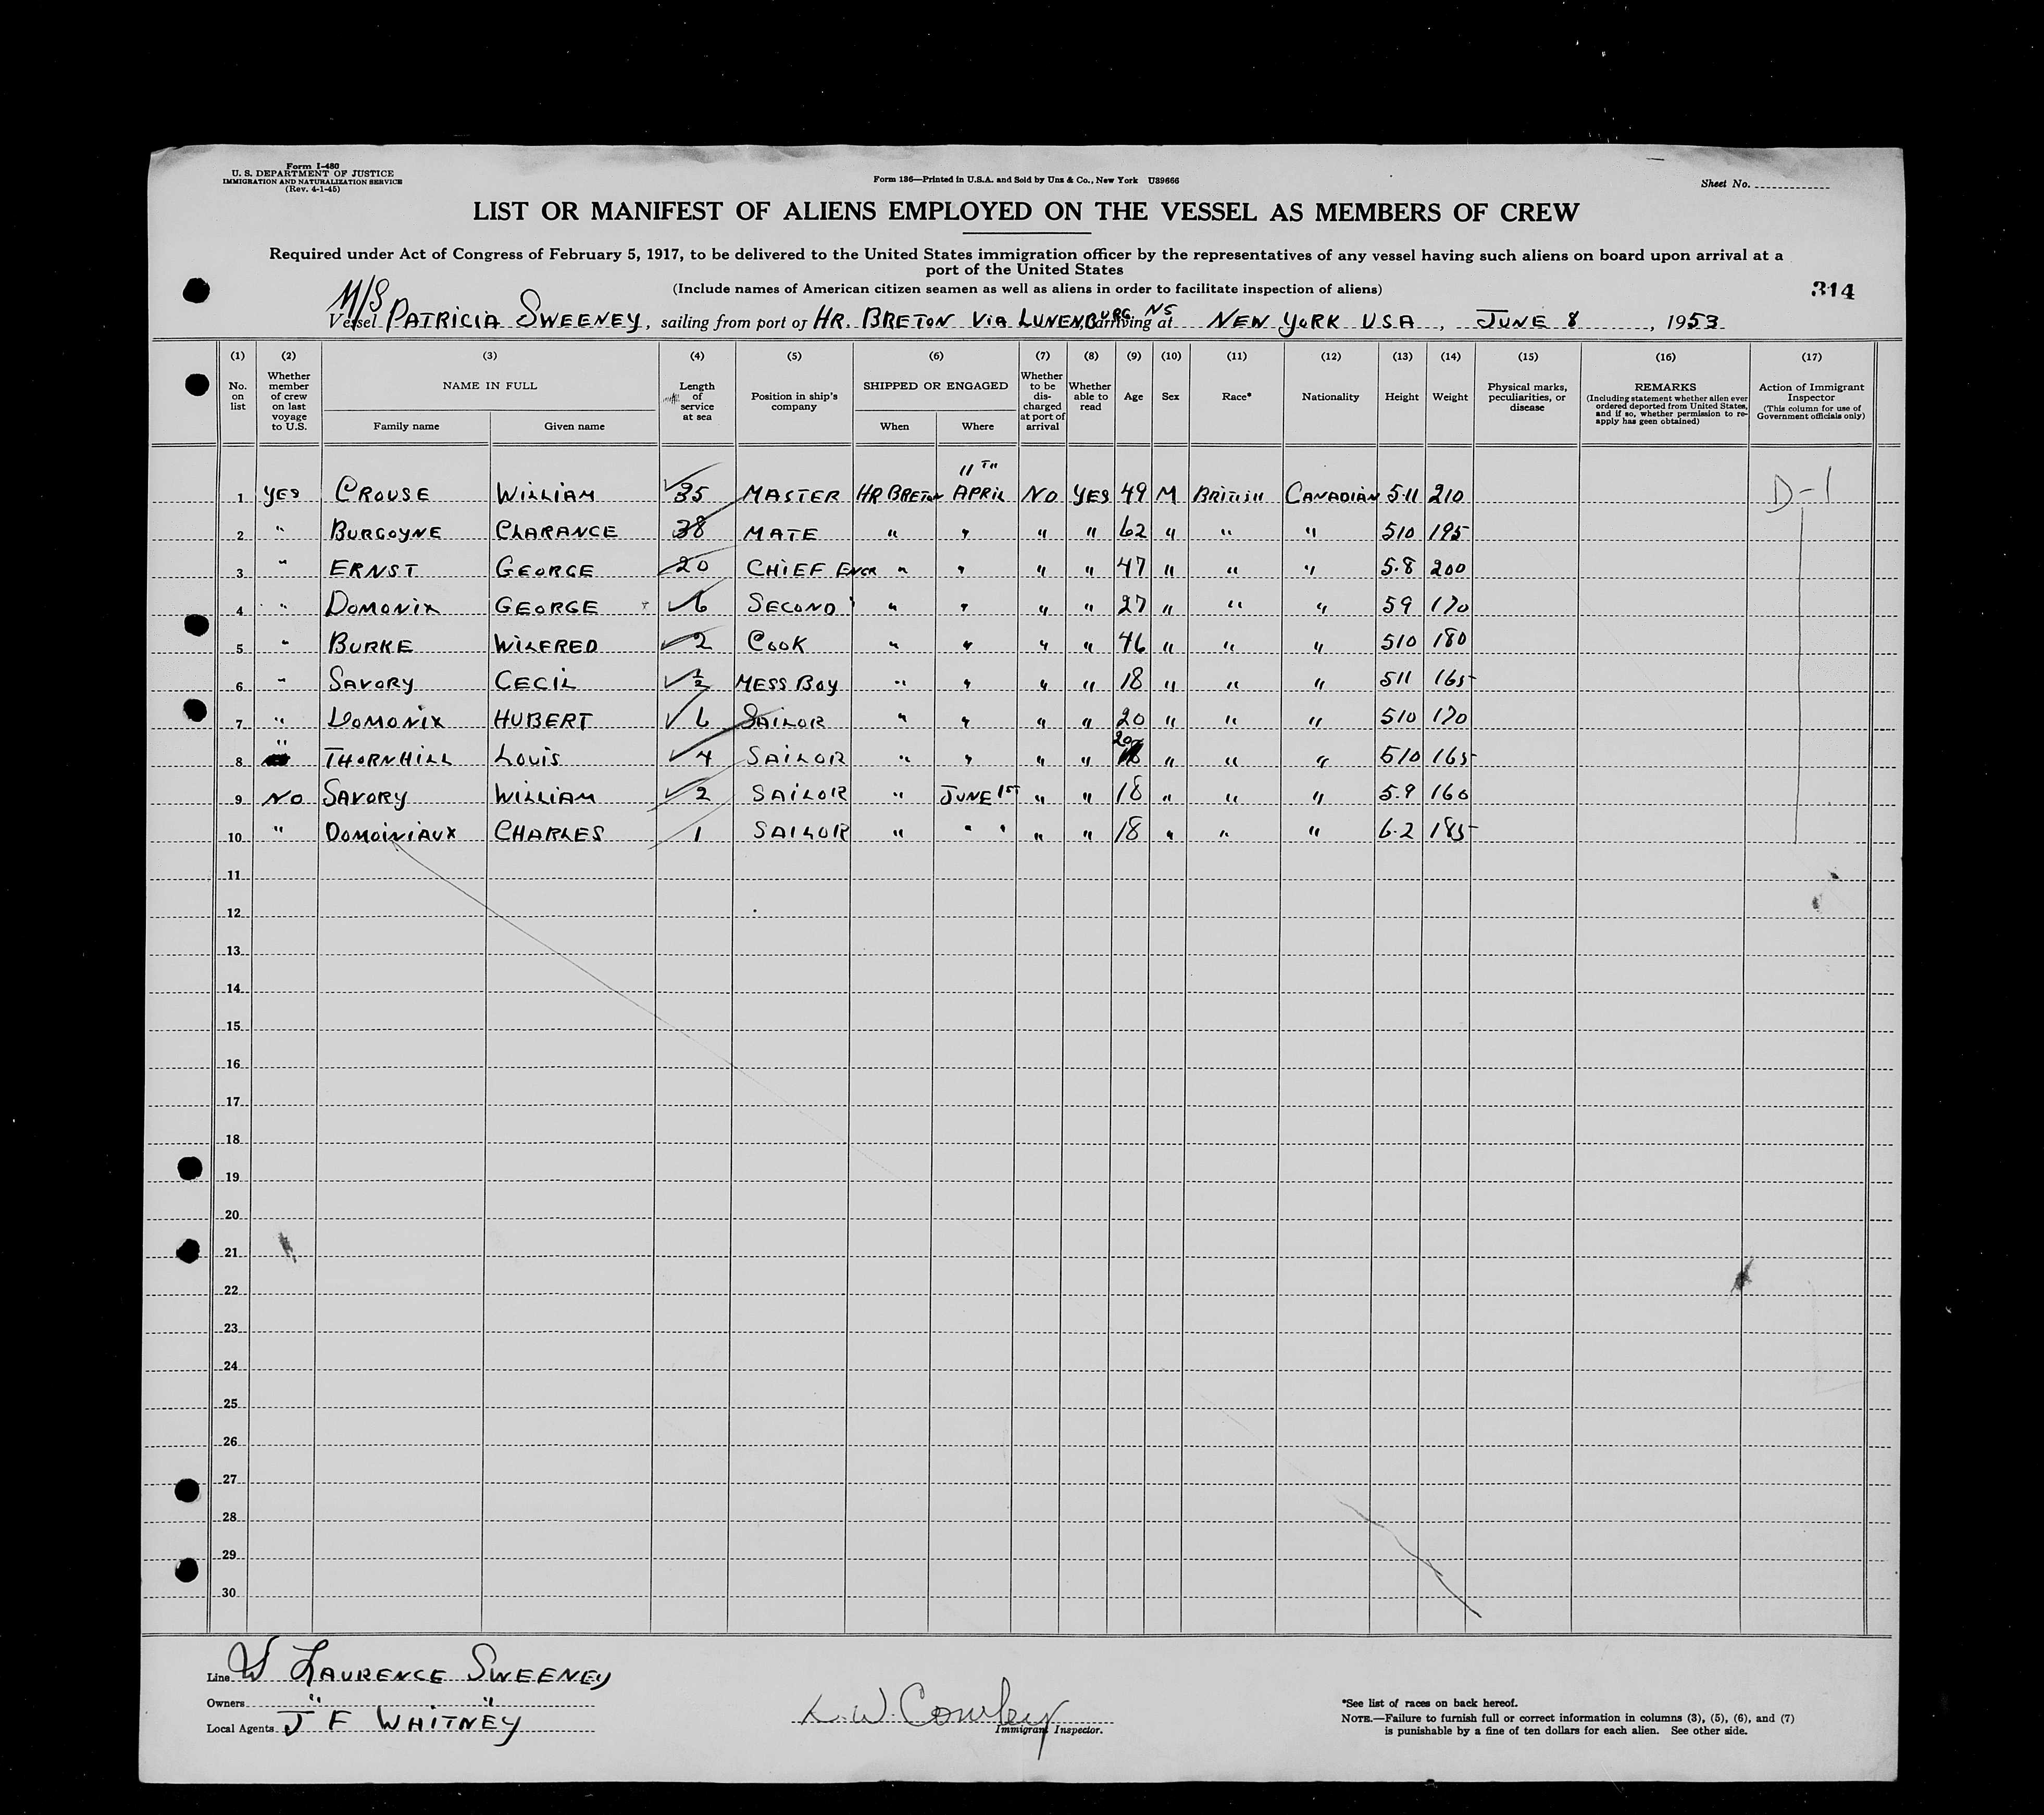 Form I-480
U. S. DEPARTMENT OF JUSTICE
IMMIGRATION AND NATURALIZATION SERVICE
(Rev. 4-1-45)
Form 136—Printed in U.S.A. and Sold by Unz & Co., New York U39666
Sheet No.
LIST OR MANIFEST OF ALIENS EMPLOYED ON THE VESSEL AS MEMBERS OF CREW
Required under Act of Congress of February 5, 1917, to be delivered to the United States immigration officer by the representatives of any vessel having such aliens on board upon arrival at a
port of the United States
(Include names of American citizen seamen as well as aliens in order to facilitate inspection of aliens)
314
M/S
Vessel PATRICIA SWEENEY, sailing from port of HR. BRETON VIA LUNENBURG NS, arriving at NEW YORK USA, JUNE 8, 1953
(1) (2) (3) (4) (5) (6) (7) (8) (9) (10) (11) (12) (13) (14) (15) (16) (17)
No. on list
Whether member of crew on last voyage to U.S.
NAME IN FULL
Family name Given name
Length of service at sea
Position in ship's company
SHIPPED OR ENGAGED
When Where
Whether to be discharged at port of arrival
Whether able to read
Age
Sex
Race*
Nationality
Height
Weight
Physical marks, peculiarities, or disease
REMARKS
(Including statement whether alien ever ordered deported from United States, and if so, whether permission to re-apply has geen obtained)
Action of Immigrant Inspector
(This column for use of Government officials only)
11TH
1 YES CROUSE WILLIAM 35 MASTER HR BRETON APRIL NO YES 49 M BRITISH CANADIAN 5 11 210 D-1
2 " BURGOYNE CLARANCE 38 MATE " " " " 62 " " " 5 10 195
3 " ERNST GEORGE 20 CHIEF ENGR " " " " 47 " " " 5.8 200
4 " DOMONIX GEORGE 6 SECOND " " " " " 27 " " " 5 9 170
5 " BURKE WILFRED 2 COOK " " " " 46 " " " 5 10 180
6 " SAVORY CECIL ½ MESS BOY " " " " 18 " " " 5 11 165
7 " DOMONIX HUBERT 6 SAILOR " " " " 20 " " " 5 10 170
8 " THORNHILL LOUIS 4 SAILOR " " " " 20 " " " 5 10 165
9 NO SAVORY WILLIAM 2 SAILOR " JUNE 1ST " " 18 " " " 5.9 160
10 " DOMOINIAUX CHARLES 1 SAILOR " " " " " 18 " " " 6.2 185
11
12
13
14
15
16
17
18
19
20
21
22
23
24
25
26
27
28
29
30
Line W LAURENCE SWEENEY
Owners " "
Local Agents J F WHITNEY
Immigrant Inspector.
*See list of races on back hereof.
NOTE.—Failure to furnish full or correct information in columns (3), (5), (6), and (7)
is punishable by a fine of ten dollars for each alien. See other side.